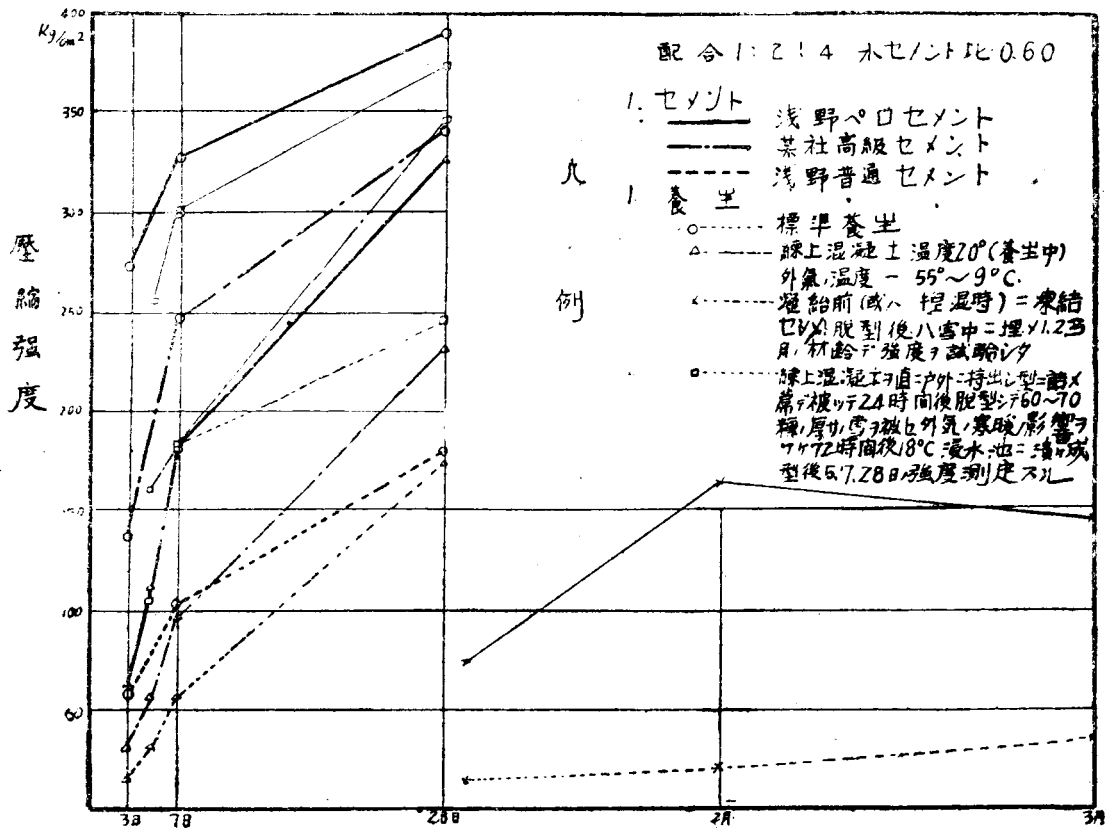 400
Kg/cm2
350
300
250
200
150
100
50
壓縮强度
3日
7日
28日
2月
3月
配合1:2:4 水セメント比0.60
凡例
1. セメント
浅野ベロセメント
某社高級セメント
浅野普通セメント
1. 養生
標準養生
練上混凝土温度20°(養生中)
外氣温度 - 55°~9°C.
凍結
セシメ脱型後八雪中ニ埋メ1.2.3
月ノ材齢デ强度ヲ試驗シタ
練上混凝土ヲ直ニ戸外ニ持出シ型ニ詰メ
被ッテ24時間後脱型シテ60~70
厚サノ雪ヲ被セ外気ノ寒暖ノ影響ヲ
ウケ72時間後18°C浸水池ニ漬ケ成
型後5.7.28日ノ强度測定スル